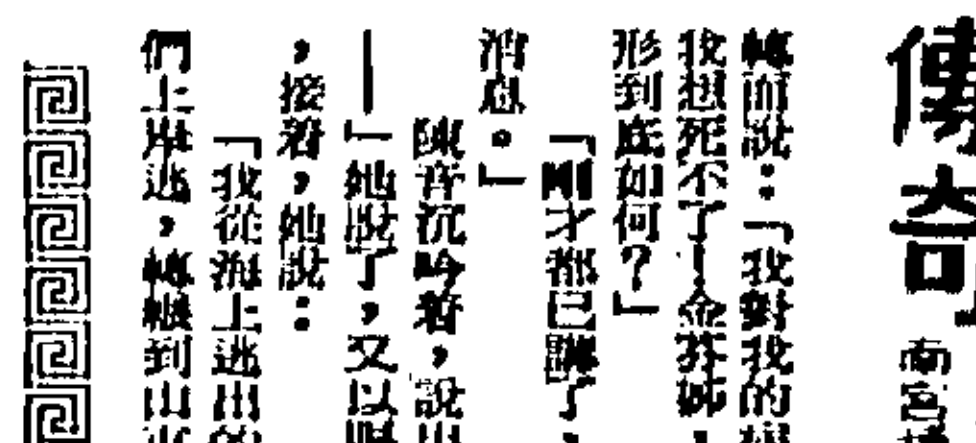 傳奇
南宮
轉而說：「我對我的
我想死不了！金芬姊，
形到底如何？」
「剛才都已講了，
消息。」
陳音沉吟着，說出
——」她說了，又以
，接着，她說：
「我從海上逃出的
們上岸逃，轉輾到山